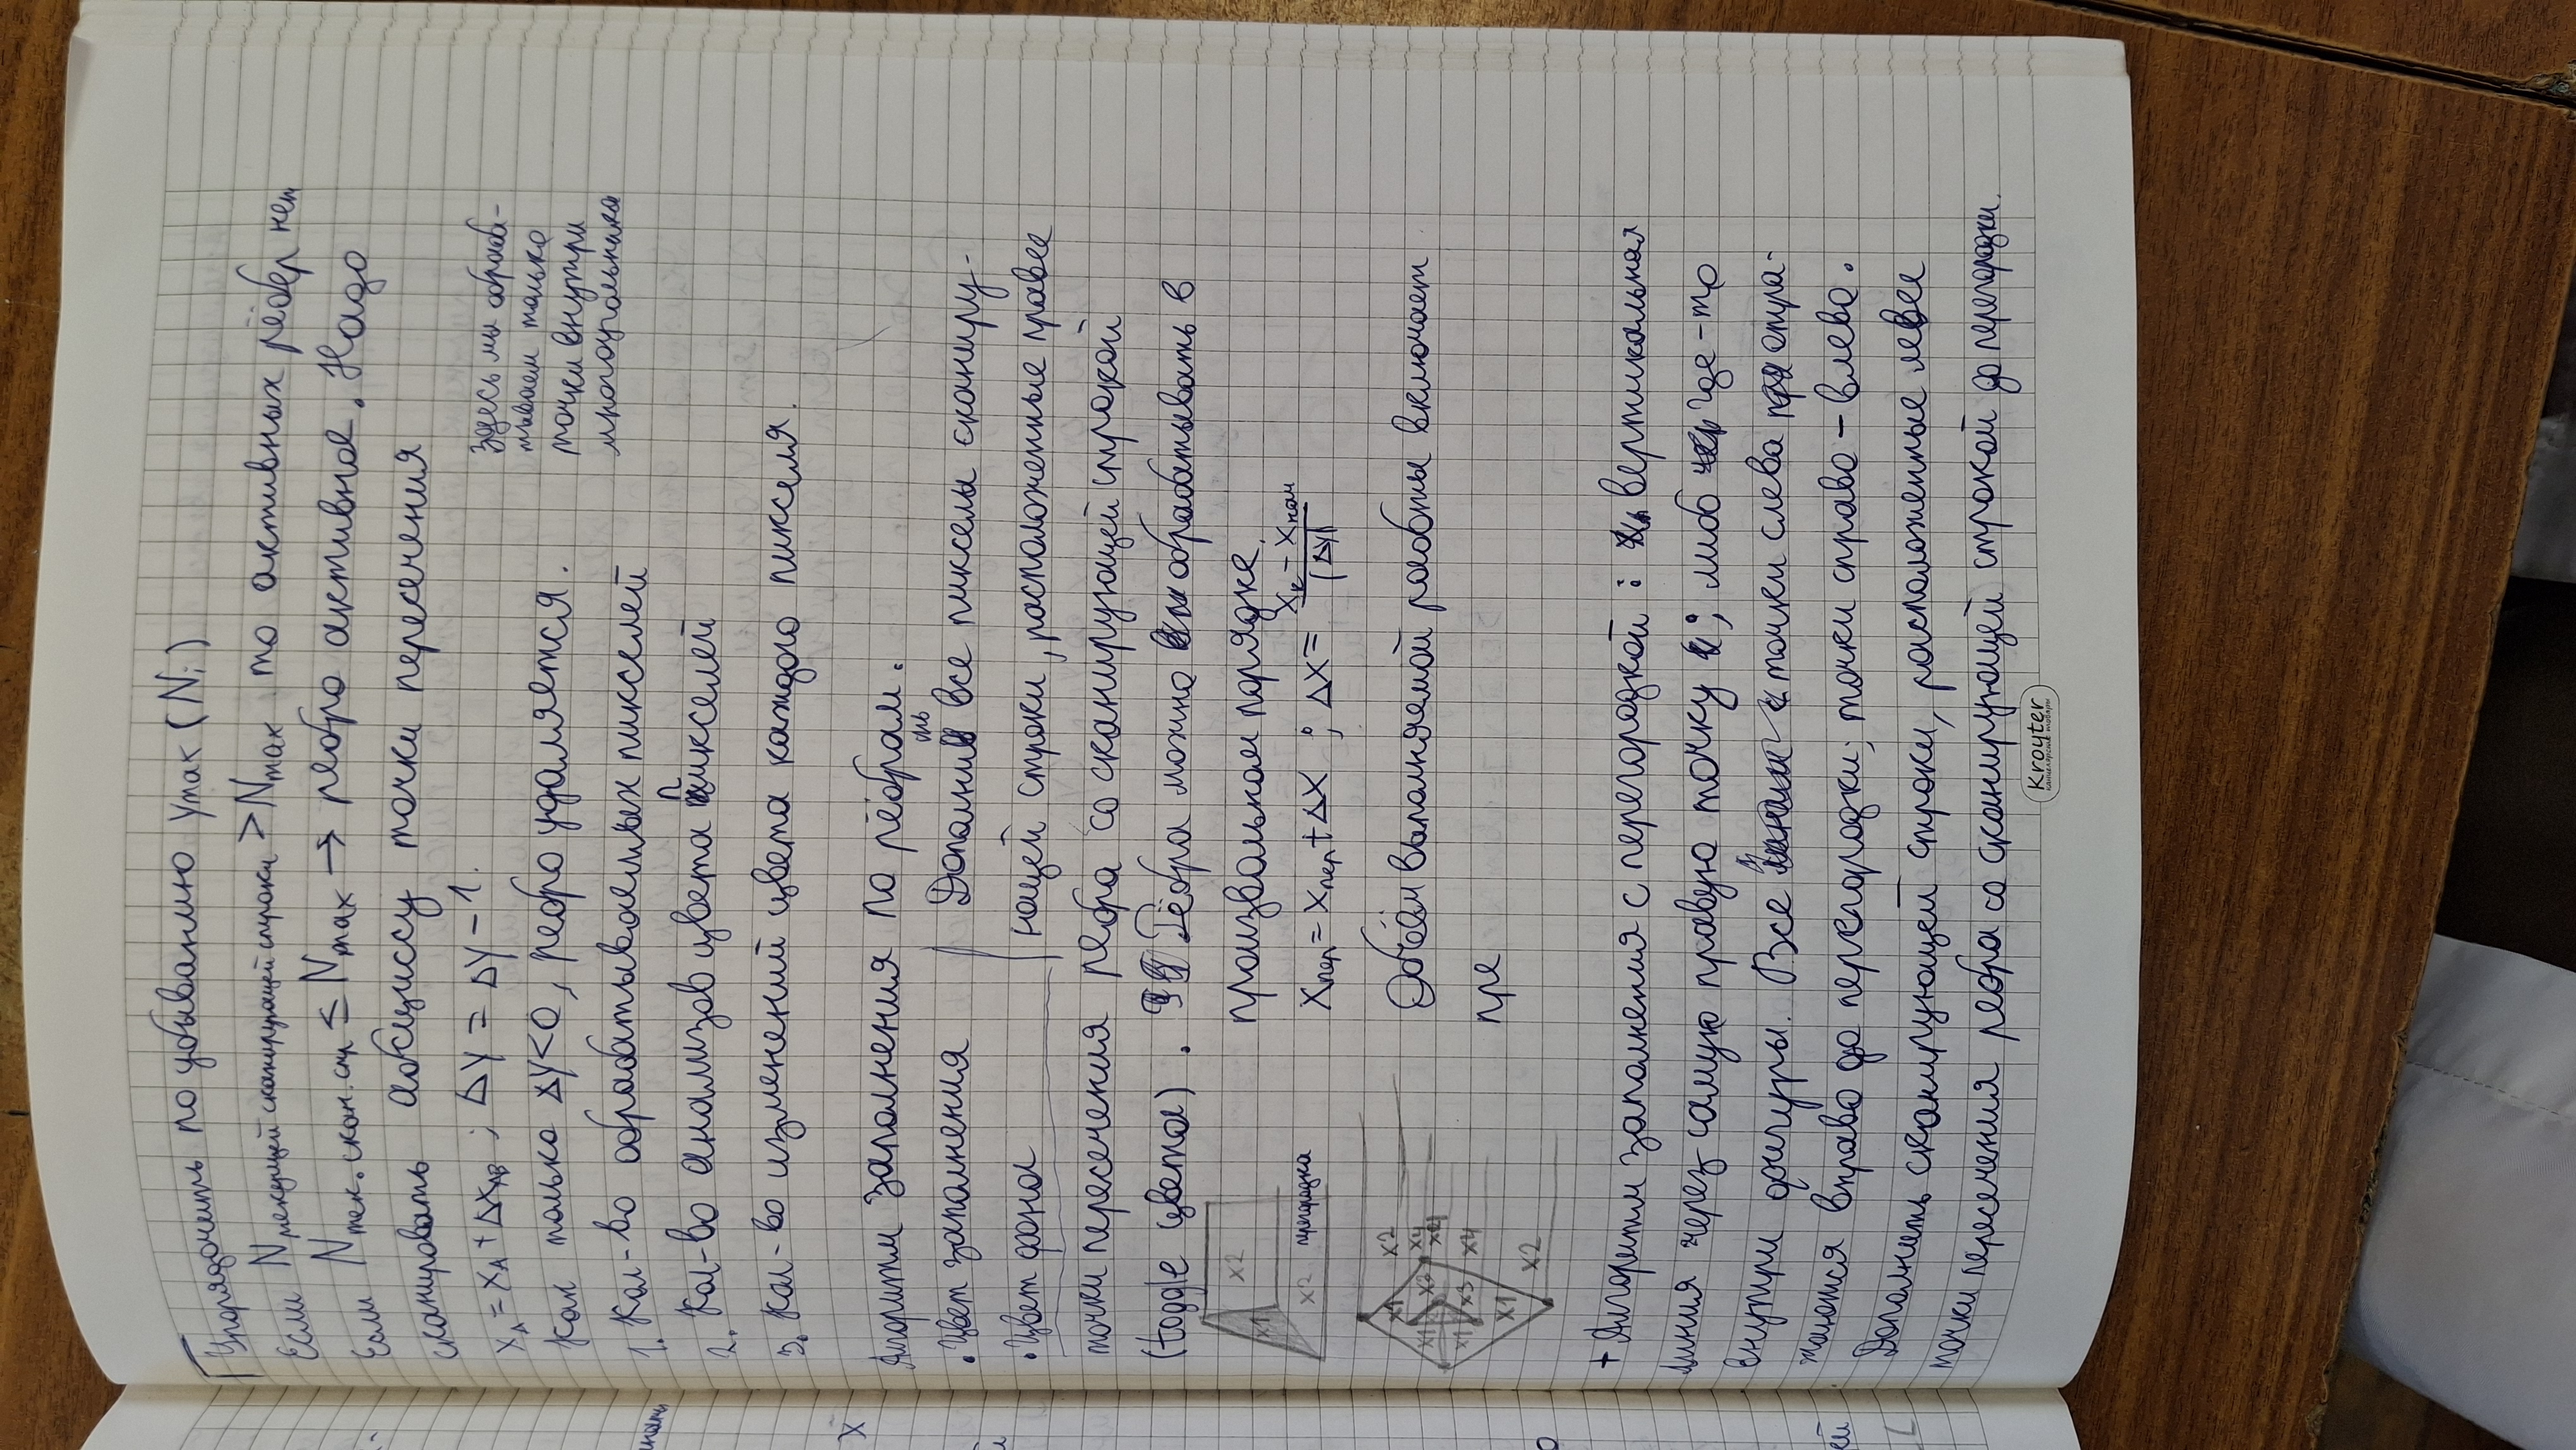 Упорядочить по убыванию Ymax (Ni)
Если Nтекущей сканирующей строки > Nmax то активных рёбер нет
Если Nтек. скан. стр ≤ Nmax → ребро активное. Надо
сканировать абсциссу точки пересечения
xA = xA + ΔxAB ; ΔY = ΔY - 1.
Как только ΔY<0, ребро удаляется.
Здесь мы обраба-
тываем только
точки внутри
многоугольника
1. Кол-во обрабатываемых пикселей
2. Кол-во анализов цвета пикселей
3. Кол-во изменений цвета каждого пикселя.
Алгоритм заполнения по рёбрам.
• Цвет заполнения
• Цвет фона
Дополнить все пикселы сканиру-
ющей строки, расположенные правее
точки пересечения ребра со сканирующей строкой
(toggle цвета). Рёбра можно обрабатывать в
произвольном порядке.
x1
x2
x2 перегородка
Xпер = Xпер + ΔX ; ΔX = Xк - Xнач / |ΔY|
x1 x2
x1 x3 x4
x4
x1 x3 x4
x1
x2
Объём выполняемой работы включает
пре
+ Алгоритм заполнения с перегородкой : вертикальная
линия через самую правую точку ; либо где-то
внутри фигуры. Все точки слева отра-
жаются вправо до перегородки; точки справо - влево.
Дополнить сканирующей строки, расположенные левее
точки пересечения ребра со сканирующей строкой до перегородки.
Kroyter
канцелярские товары